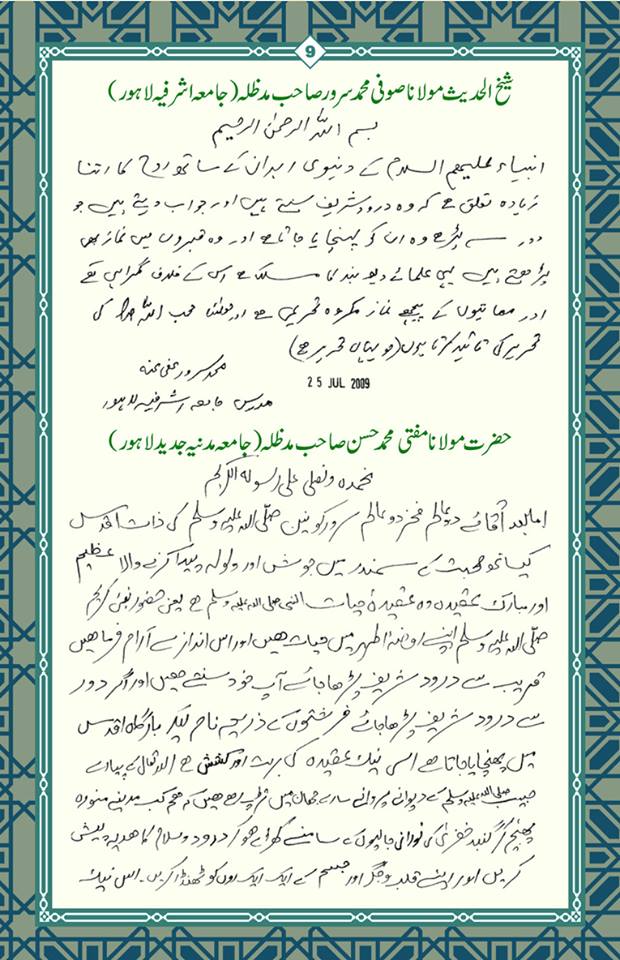 9
شیخ الحدیث مولانا صوفی محمد سرور صاحب مدظلہ (جامعہ اشرفیہ لاہور)
بسم اللہ الرحمٰن الرحیم
انبیاء علیہم السلام کے دنیوی ابدان کے ساتھ روح کا اتنا
زیادہ تعلق ہے کہ وہ درود شریف سنتے ہیں اور جواب دیتے ہیں جو
دور سے پڑھے وہ ان کو پہنچایا جاتا ہے اور وہ قبروں میں نماز بھی
پڑھتے ہیں یہی علمائے دیوبند کا مسلک ہے اس کے خلاف گمراہی ہے
اور مماتیوں کے پیچھے نماز مکروہ تحریمی ہے اور مولانا محب اللہ کی
تحریر کی تائید کرتا ہوں (جو یہاں تحریر ہے)
محمد سرور عفی عنہ
25 JUL 2009
مدرس جامعہ اشرفیہ لاہور
حضرت مولانا مفتی محمد حسن صاحب مدظلہ (جامعہ مدنیہ جدید لاہور)
نحمدہ ونصلی علی رسولہ الکریم
اما بعد آقائے دو عالم فخر دو عالم سرور کونین صلی اللہ علیہ وسلم کی ذات اقدس
کیساتھ محبت کے سمندر میں جوش اور ولولہ پیدا کرنے والا عظیم
اور مبارک عقیدہ وہ عقیدۂ حیات النبی صلی اللہ علیہ وسلم ہے یعنی حضور نبی کریم
صلی اللہ علیہ وسلم اپنے روضہ اطہر میں حیات ھیں اور اس انداز سے آرام فرما ھیں
قریب سے درود شریف پڑھا جائے آپ خود سنتے ھیں اور اگر دور
سے درود شریف پڑھا جائے فرشتوں کے ذریعہ نام لیکر بارگاہ اقدس
میں پھنچایا جاتا ھے اسی نیک عقیدہ کی برکت اور کشش ھے اللہ تعالی کے پیارے
حبیب صلی اللہ علیہ وسلم کے دیوانے پروانے سارے جہان میں تڑپ رھے ھیں کہ ھم کب مدینہ منورہ
پھنچ کر گنبد خضریٰ کی نورانی جالیوں کے سامنے کھڑے ھو کر درود وسلام کا ھدیہ پیش
کریں اور اپنے قلب وجگر اور جسم کے ایک ایک روں کو ٹھنڈا کریں۔ اس نیک